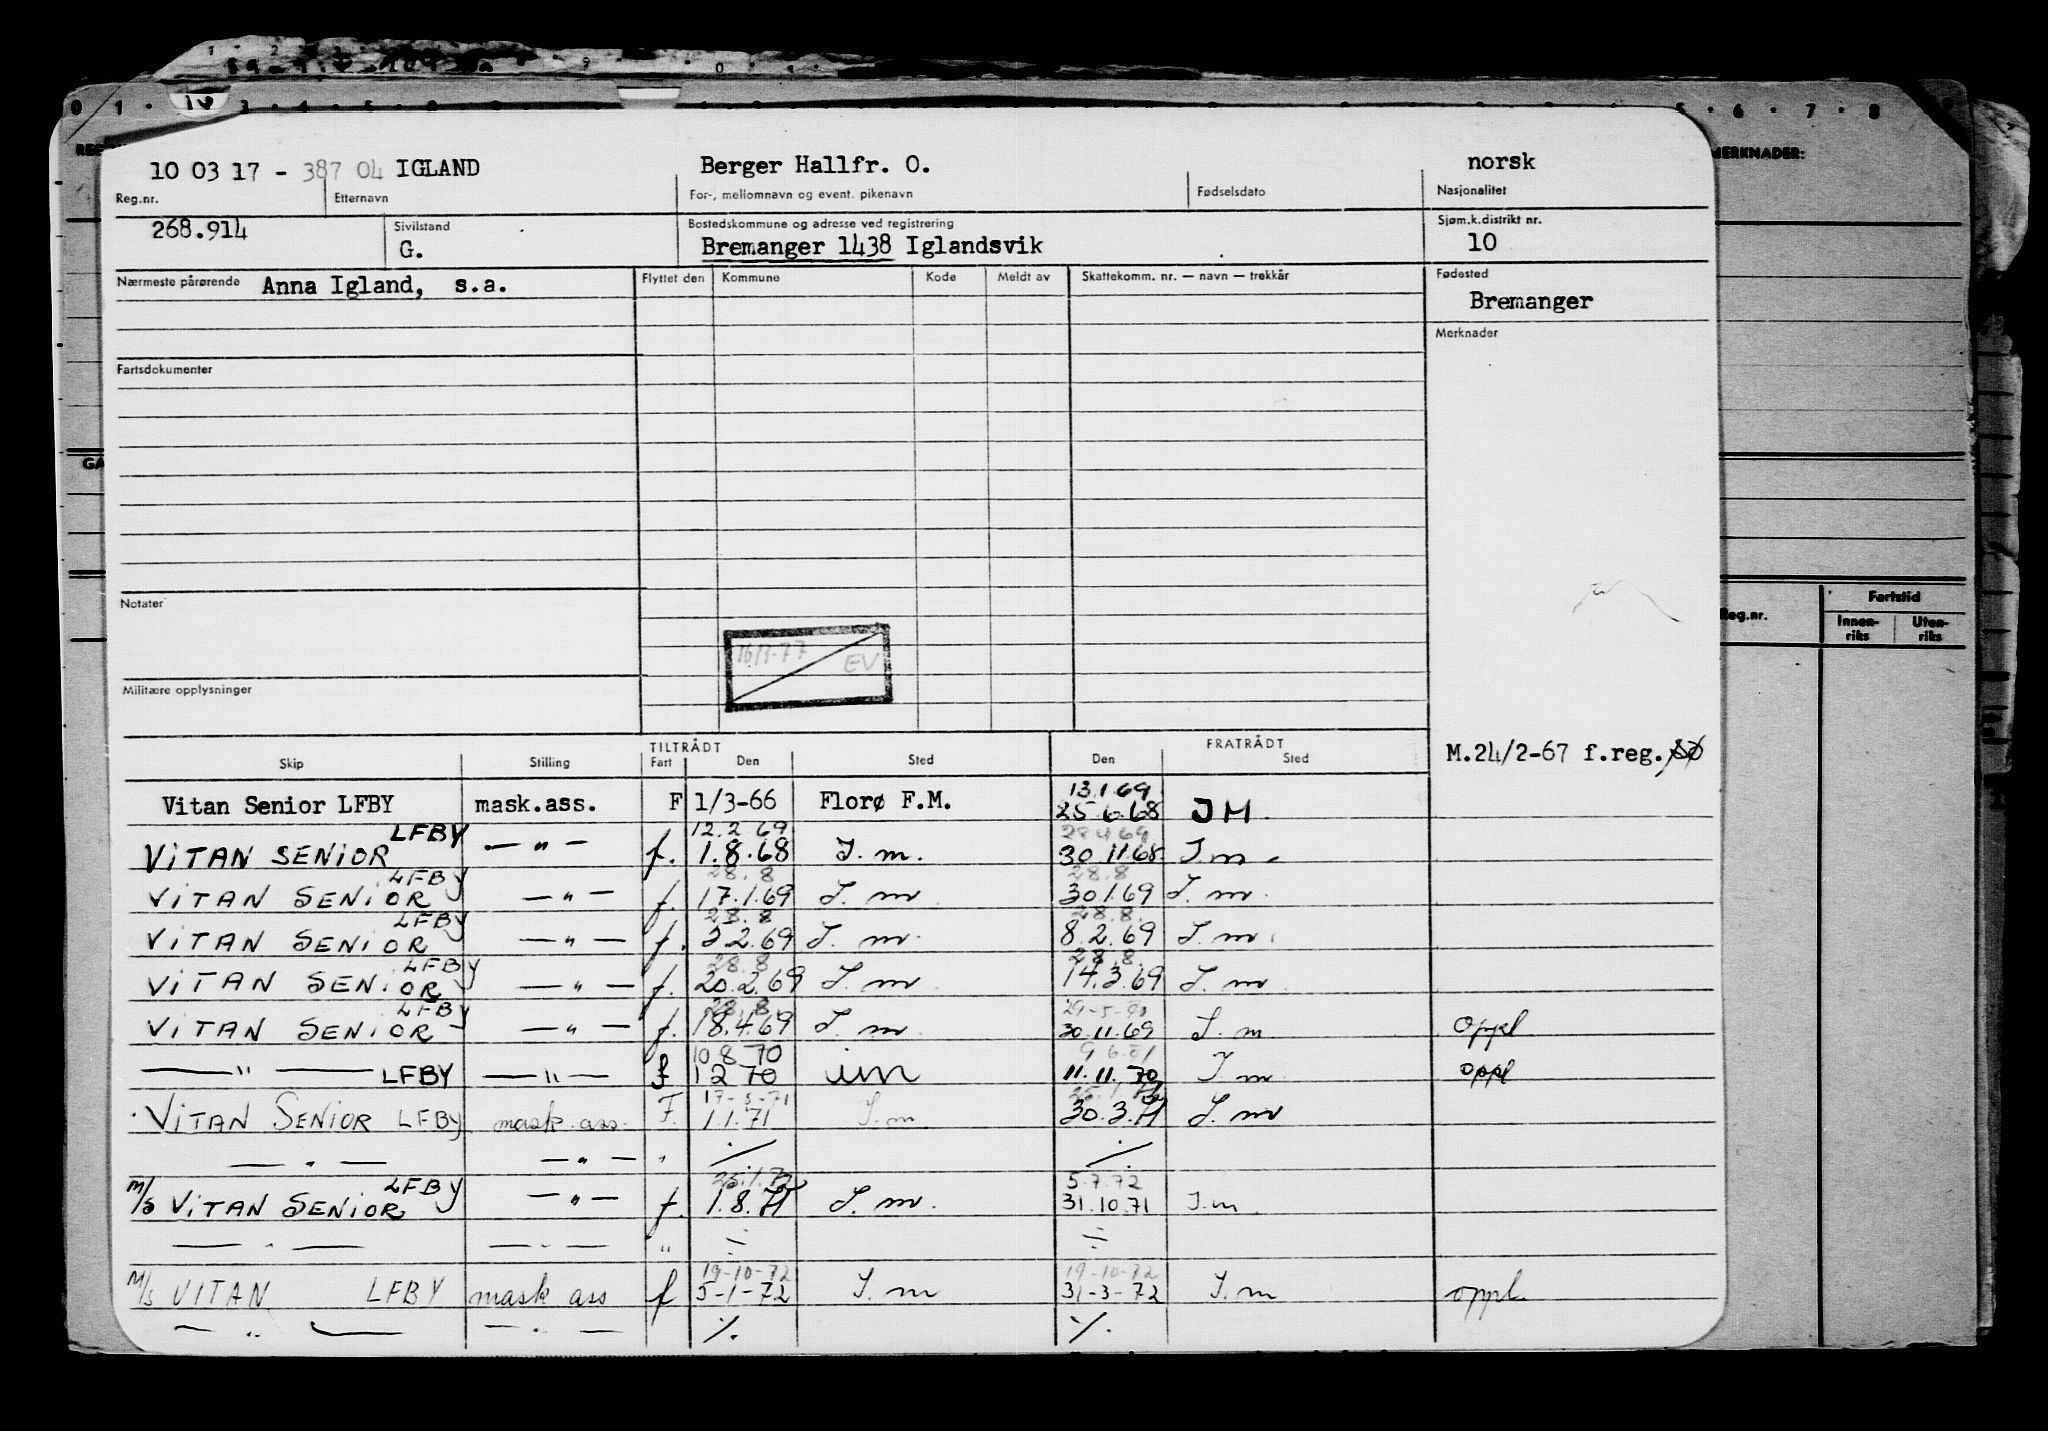 10 03 17 - 387 04 IGLAND Berger Hallfr. O. norsk
Reg.nr. Etternavn For-, mellomnavn og event. pikenavn Fødselsdato Nasjonalitet
MERKNADER:
268.914 Sivilstand G. Bostedskommune og adresse ved registrering Sjøm.k.distrikt nr.
Bremanger 1438 Iglandsvik 10
Nærmeste pårørende Anna Igland, s.a. Flyttet den Kommune Kode Meldt av Skattekomm. nr. — navn — trekkår Fødested
Bremanger
Merknader
Fartsdokumenter
Notater
Reg.nr. Fartstid
Innen-riks Uten-riks
16/3-77 EV
Militære opplysninger
TILTRÅDT FRATRÅDT
Skip Stilling Fart Den Sted Den Sted
M.24/2-67 f.reg.
13.1.69
Vitan Senior LFBY mask.ass. F 1/3-66 Florø F.M. 25.6.68 J M.
12.2.69 28.4.69
VITAN SENIOR LFBY — " — f. 1.8.68 J. m. 30.11.68 J. m.
28.8 28.8
VITAN SENIOR LFBY — " — f. 17.1.69 J. m. 30.1.69 J. m.
28.8 28.8.
VITAN SENIOR LFBY — " — f. 3.2.69 J. m. 8.2.69 J. m.
28.8 28.8.
VITAN SENIOR LFBY — " — f. 20.2.69 J. m. 14.3.69 J. m.
28.8. 29-5-70
VITAN SENIOR LFBY — " — f. 18.4.69 J. m. 30.11.69 J. m. oppl
10 8 70
— " — LFBY — " — f 1 2 70 im 11.11.70 J. m. oppl
17-5-71
VITAN SENIOR LFBY mask. ass. F. 1.1.71 J. m. 30.3.71 J. m.
— " — — " — " ./. ./.
25.1.72 5.7.72
M/S VITAN SENIOR LFBY — " — f. 1.8.71 J. m. 31.10.71 J. m.
— " — — " — " ÷ ÷
19-10-72 19-10-72
M/S VITAN LFBY mask ass f 5-1-72 J. m 31-3-72 J. m oppl.
— " — — " — ./. ./.